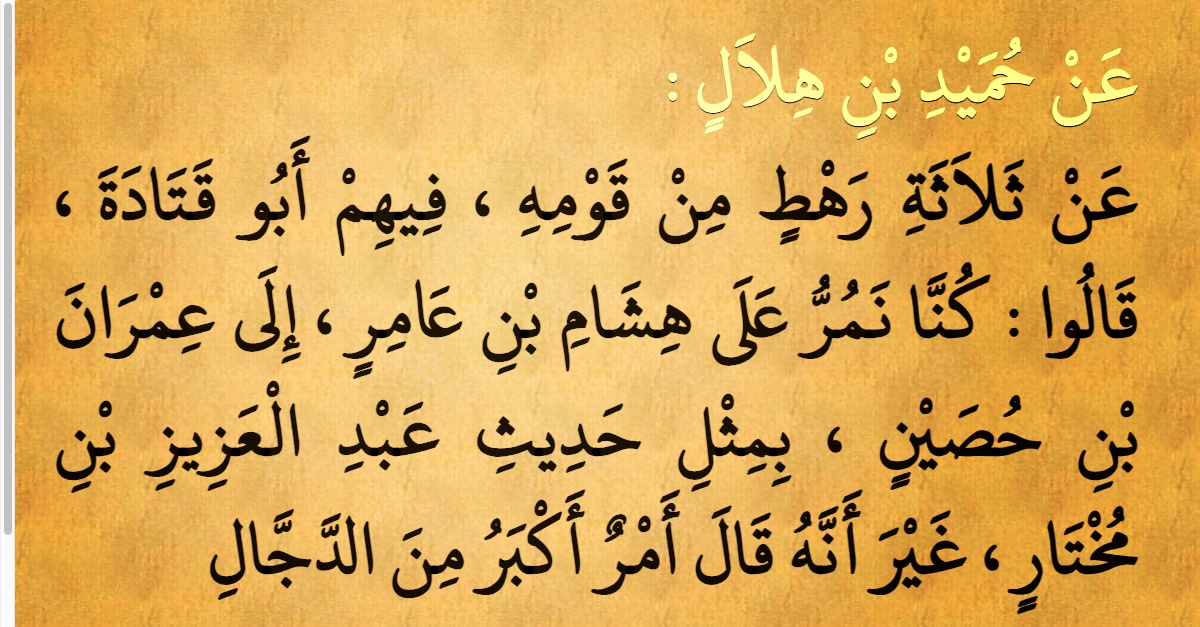 عَنْ حُمَيْدِ بْنِ هِلاَلٍ :
عَنْ ثَلاَثَةِ رَهْطٍ مِنْ قَوْمِهِ ، فِيهِمْ أَبُو قَتَادَةَ ،
قَالُوا : كُنَّا نَمُرُّ عَلَى هِشَامِ بْنِ عَامِرٍ ، إِلَى عِمْرَانَ
بْنِ حُصَيْنٍ ، بِمِثْلِ حَدِيثِ عَبْدِ الْعَزِيزِ بْنِ
مُخْتَارٍ ، غَيْرَ أَنَّهُ قَالَ أَمْرٌ أَكْبَرُ مِنَ الدَّجَّالِ